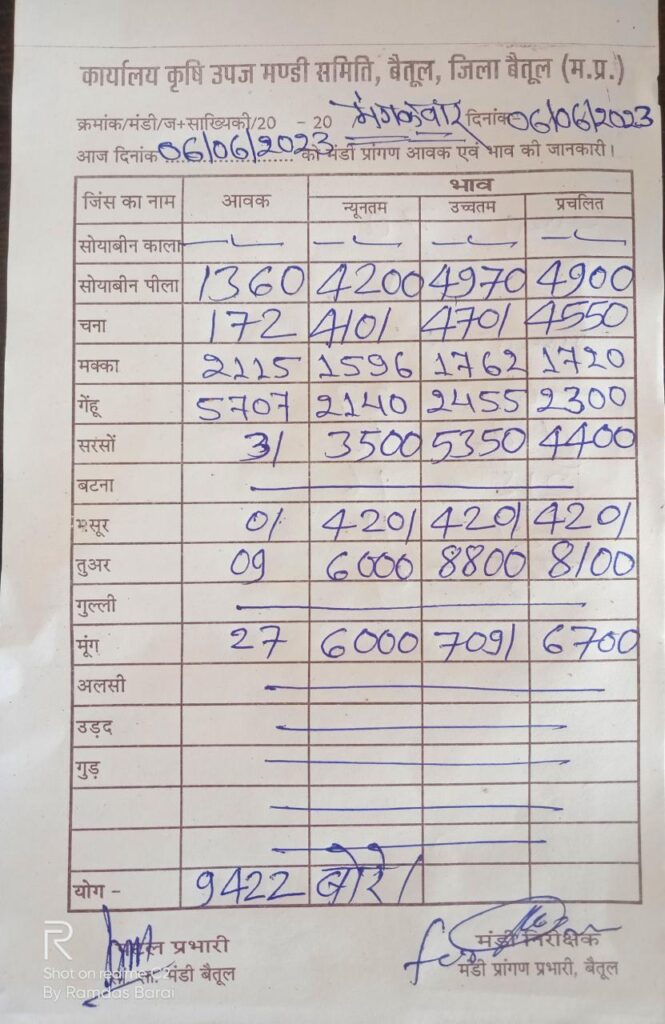 कार्यालय कृषि उपज मण्डी समिति, बैतूल, जिला बैतूल (म.प्र.)
क्रमांक/मंडी/ज+सांख्यिकी/20 - 20 मंगलवार दिनांक 06/06/2023
आज दिनांक 06/06/2023 को मंडी प्रांगण आवक एवं भाव की जानकारी।
जिंस का नाम आवक भाव
न्यूनतम उच्चतम प्रचलित
सोयाबीन काला
सोयाबीन पीला 1360 4200 4970 4900
चना 172 4101 4701 4550
मक्का 2115 1596 1762 1720
गेंहू 5707 2140 2455 2300
सरसों 31 3500 5350 4400
बटना
मसूर 01 4201 4201 4201
तुअर 09 6000 8800 8100
गुल्ली
मूंग 27 6000 7091 6700
अलसी
उड़द
गुड़
योग - 9422 बोरे।
प्रभारी मंडी निरीक्षक
मंडी बैतूल मंडी प्रांगण प्रभारी, बैतूल
R
Shot on realme
By Ramdas Barai